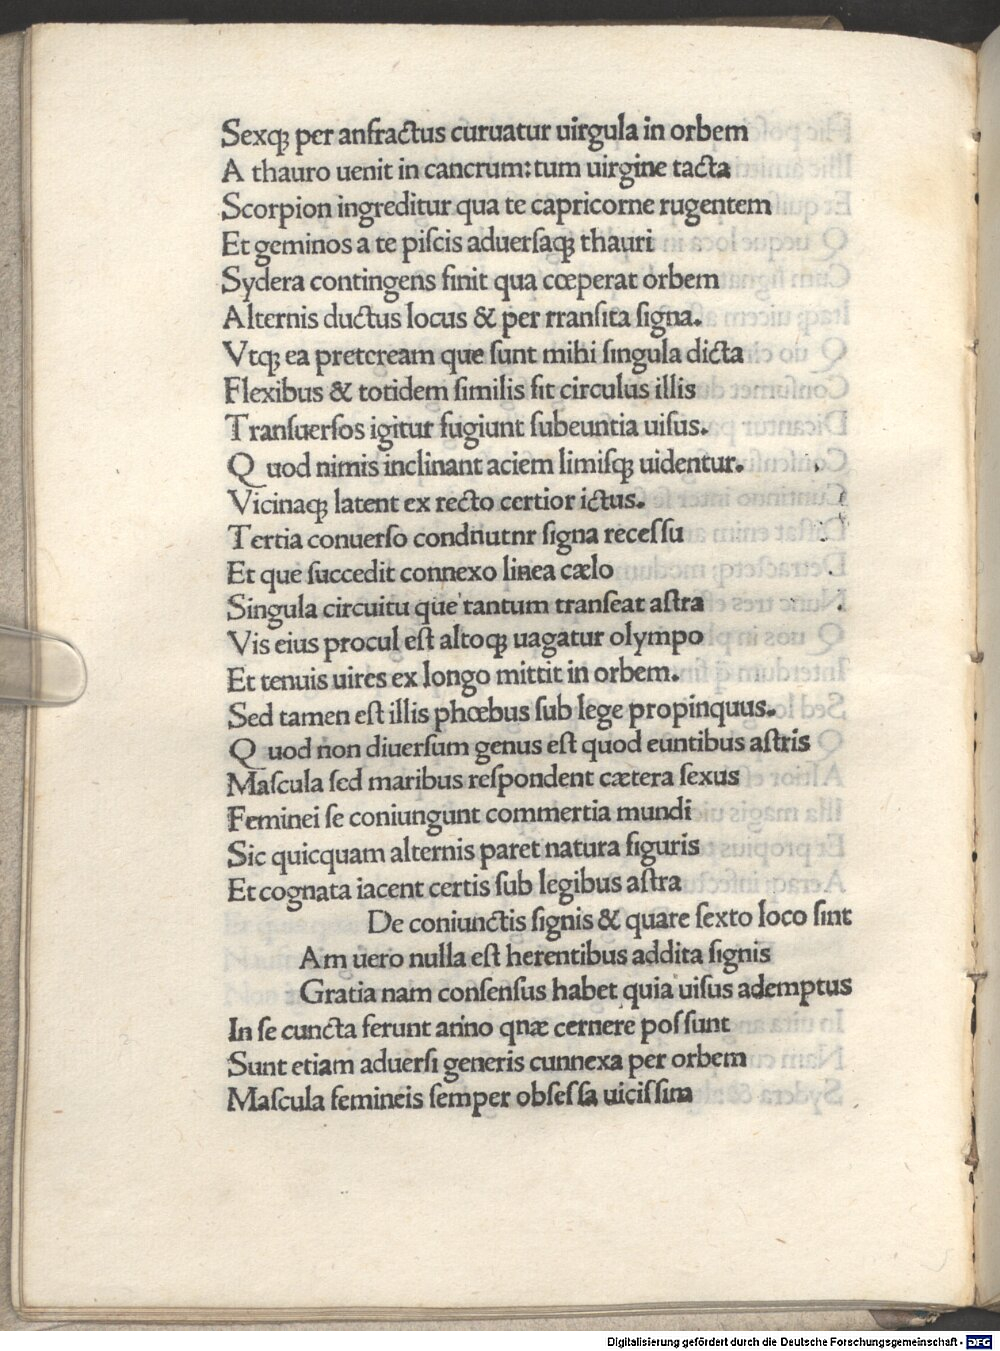 Sexqꝫ per anfractus curuatur uirgula in orbem
A thauro uenit in cancrum: tum uirgine tacta
Scorpion ingreditur qua te capricorne rugentem
Et geminos a te piſcis aduerſaqꝫ thauri
Sydera contingens finit qua cœperat orbem
Alternis ductus locus & per rranſita ſigna.
Vtqꝫ ea pretcream que ſunt mihi ſingula dicta
Flexibus & totidem ſimilis fit circulus illis
Tranſuerſos igitur fugiunt ſubeuntia uiſus.
Quod nimis inclinant aciem limiſqꝫ uidentur.
Vicinaqꝫ latent ex recto certior ictus.
Tertia conuerſo condnutnr ſigna receſſu
Et que ſuccedit connexo linea cælo
Singula circuitu que tantum tranſeat aſtra
Vis eius procul eſt altoqꝫ uagatur olympo
Et tenuis uires ex longo mittit in orbem.
Sed tamen eſt illis phœbus ſub lege propinquus.
Quod non diuerſum genus eſt quod euntibus aſtris
Maſcula ſed maribus reſpondent cætera ſexus
Feminei ſe coniungunt commertia mundi
Sic quicquam alternis paret natura figuris
Et cognata iacent certis ſub legibus aſtra
De coniunctis ſignis & quare ſexto loco ſint
Am uero nulla eſt herentibus addita ſignis
Gratia nam conſenſus habet quia uiſus ademptus
In ſe cuncta ferunt anino qnæ cernere poſſunt
Sunt etiam aduerſi generis cunnexa per orbem
Maſcula femineis ſemper obſeſſa uiciſſim
Digitalisierung gefördert durch die Deutsche Forschungsgemeinschaft - DFG